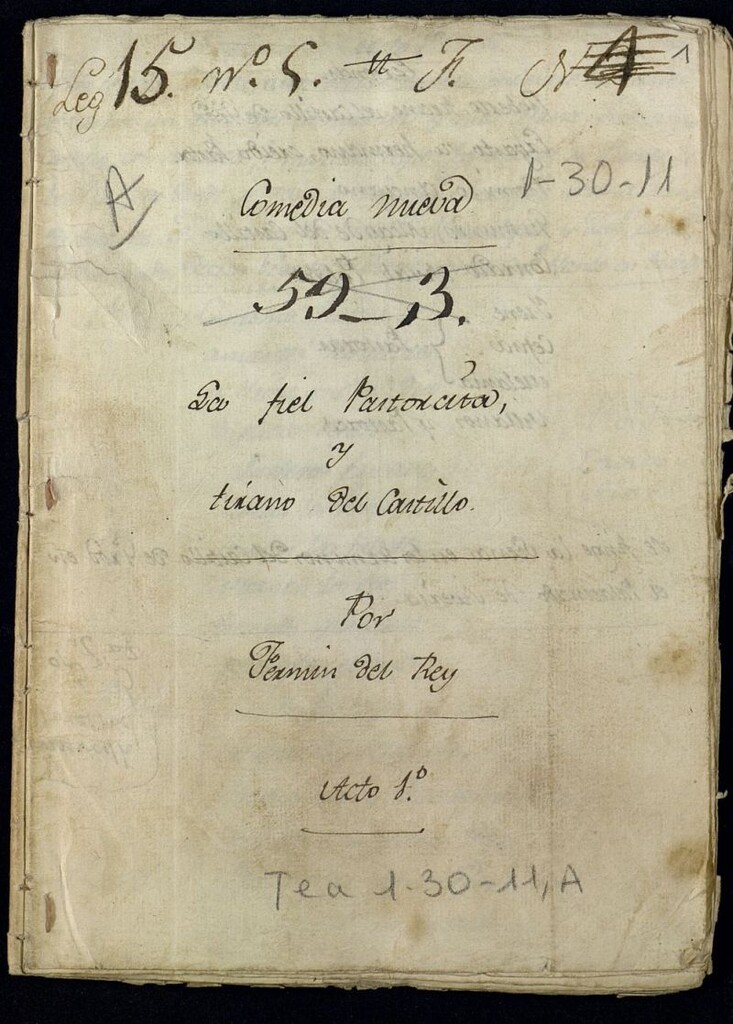 Leg 15. Nº 5. tt F. N 1
A
1-30-11
Comedia nueva
59-3.
La fiel Pastorcita,
y
tirano del Castillo.
Por
Fermin del Rey
Acto 1.º
Tea 1-30-11, A